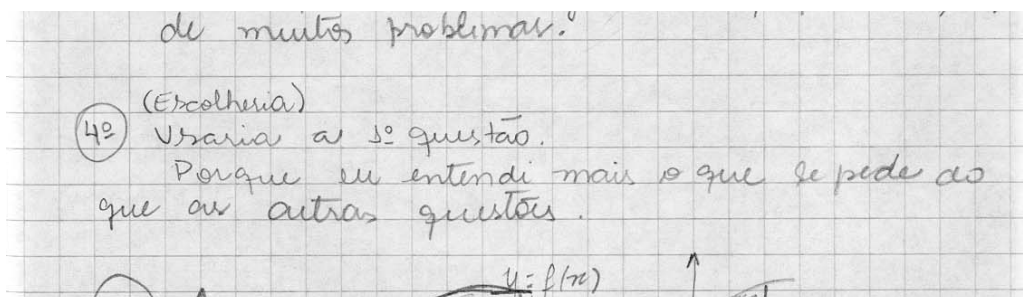 de muitos problemas."
(Escolheria)
4º Usaria a 1º questão.
Porque eu entendi mais o que se pede do
que as outras questões.
y = f(x)